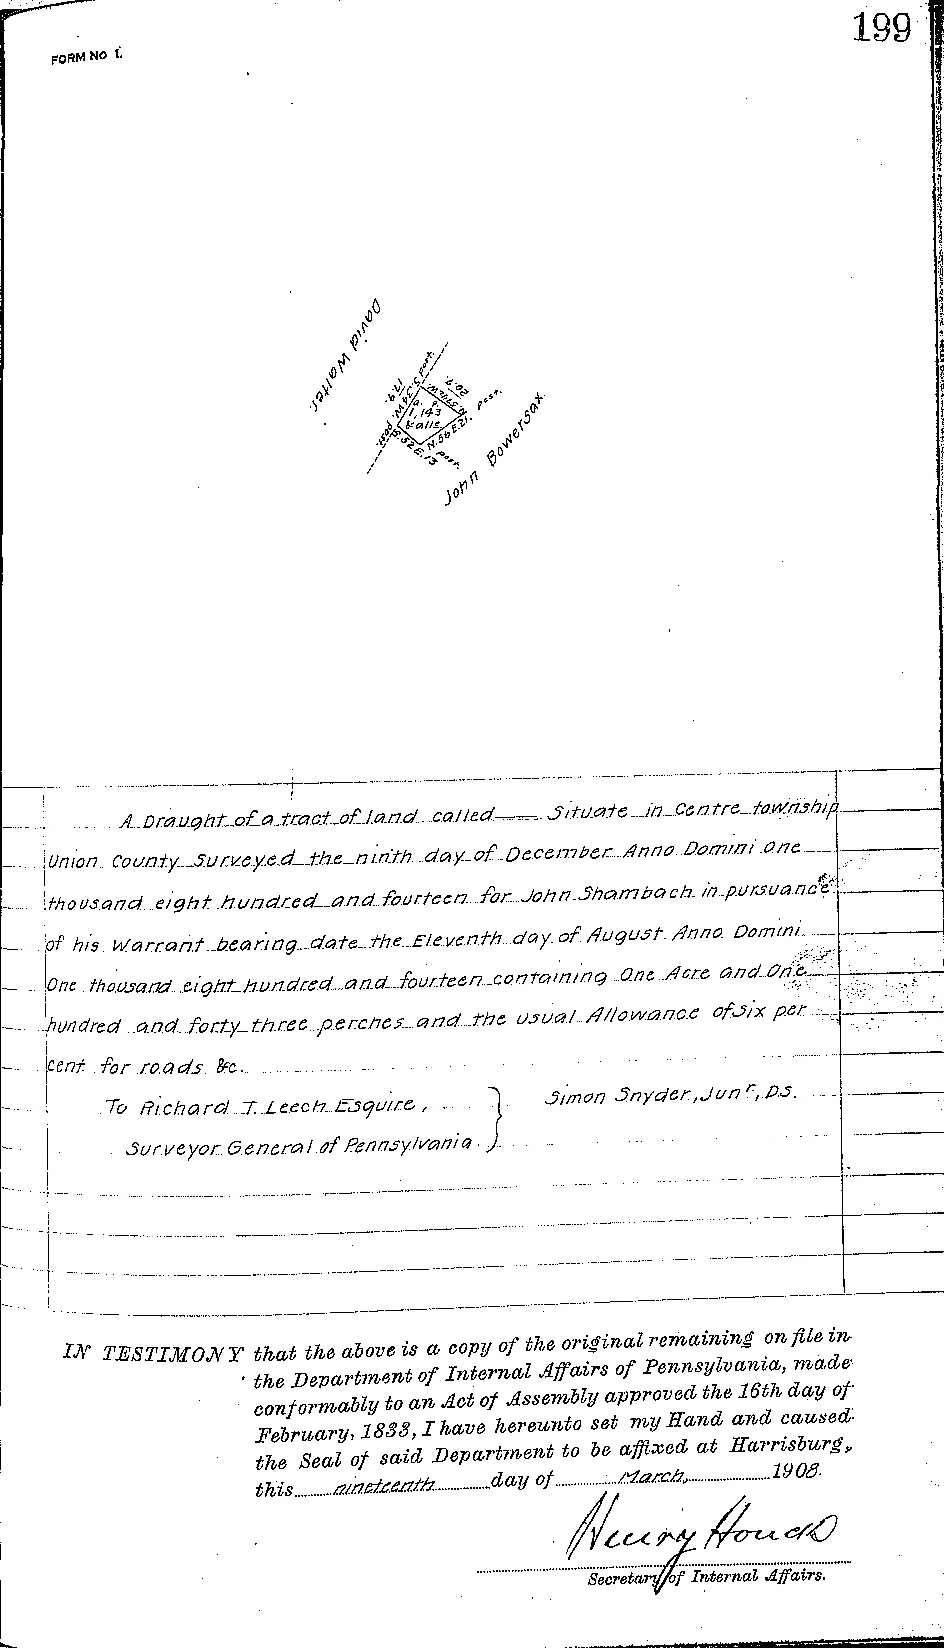 199
FORM NO 1.
David Walter
post
20.7.
17.9.
post.
a. P.
1,143
& alle
post
N.56E.21.
S.52E.13
post.
John Bowersax
A Draught of a tract of land called — Situate in Centre township
Union County Surveyed the ninth day of December Anno Domini One
thousand eight hundred and fourteen for John Shambach in pursuance
of his Warrant bearing date the Eleventh day of August Anno Domini
One thousand eight hundred and fourteen containing One Acre and One
hundred and forty three perches and the usual Allowance of six per
cent for roads &c.
To Richard T. Leech Esquire,
Simon Snyder, Junr, D.S.
Surveyor General of Pennsylvania.
IN TESTIMONY that the above is a copy of the original remaining on file in
the Department of Internal Affairs of Pennsylvania, made
conformably to an Act of Assembly approved the 16th day of
February, 1833, I have hereunto set my Hand and caused
the Seal of said Department to be affixed at Harrisburg,
this nineteenth day of March, 1908.
Henry Houck
Secretary of Internal Affairs.